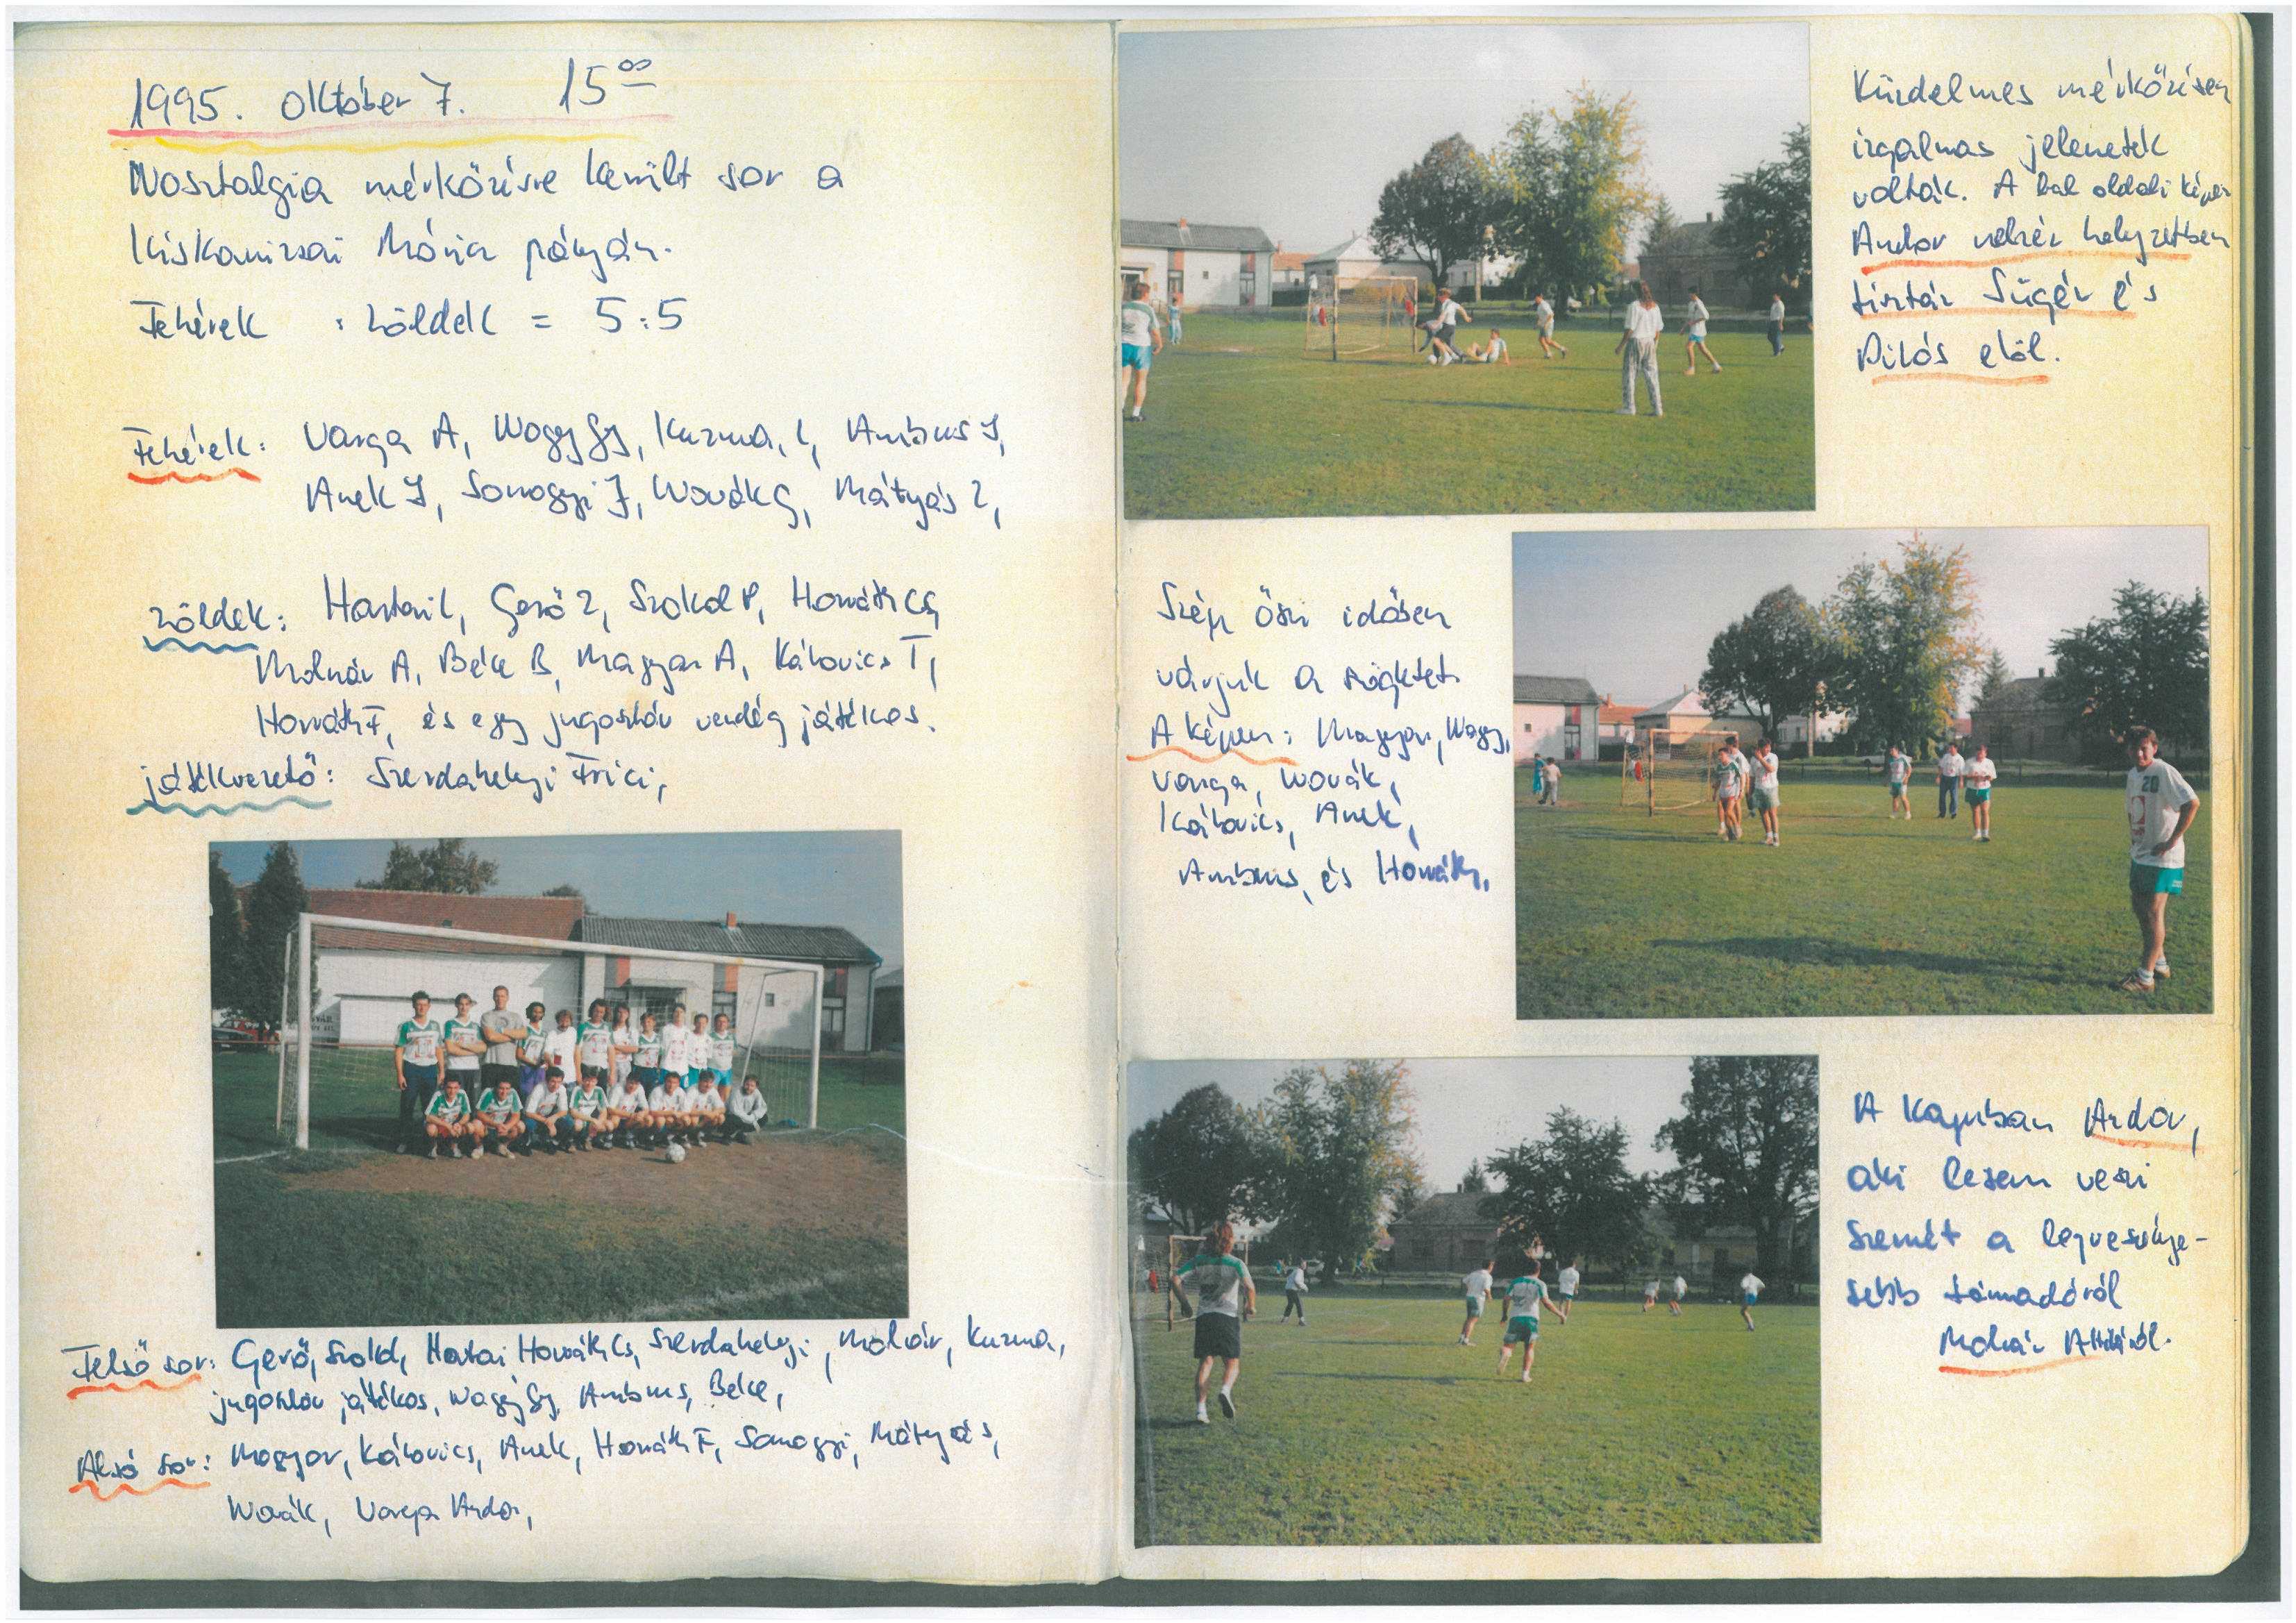 1995. október 7. 15⁰⁰
Nosztalgia mérkőzésre került sor a
Kiskanizsai Móricz pályán.
Fehérek : zöldek = 5:5
Fehérek: Varga A, Nagy Gy, Kuzma L, Ambrus J,
Anek J, Somogyi J, Novák G, Mátyás Z,
zöldek: Hartai L, Gerő Z, Szokol P, Horváth Cs,
Molnár A, Béke B, Magyar A, Kálovics T,
Horváth F, és egy jugoszláv vendég játékos.
játékvezető: Szerdahelyi Frici,
Felső sor: Gerő, Szokol, Hartai, Horváth Cs, Szerdahelyi, Molnár, Kuzma,
jugoszláv játékos, Nagy Gy, Ambrus, Béke,
Alsó sor: Magyar, Kálovics, Anek, Horváth F, Somogyi, Mátyás,
Novák, Varga Andor,
Küzdelmes mérkőzésen
izgalmas jelenetek
voltak. A bal oldali képen
Andor nehéz helyzetben
tisztáz Sügér és
elől.
Szép őszi időben
várjuk a szögletet
A képen: Magyar, Nagy,
Varga, Novák,
Kálovics, Anek,
Ambrus, és Horváth,
20
A kapuban Andor,
aki lesem veszi
szemét a legveszélye-
sebb támadóról
Molnár Attiláról.